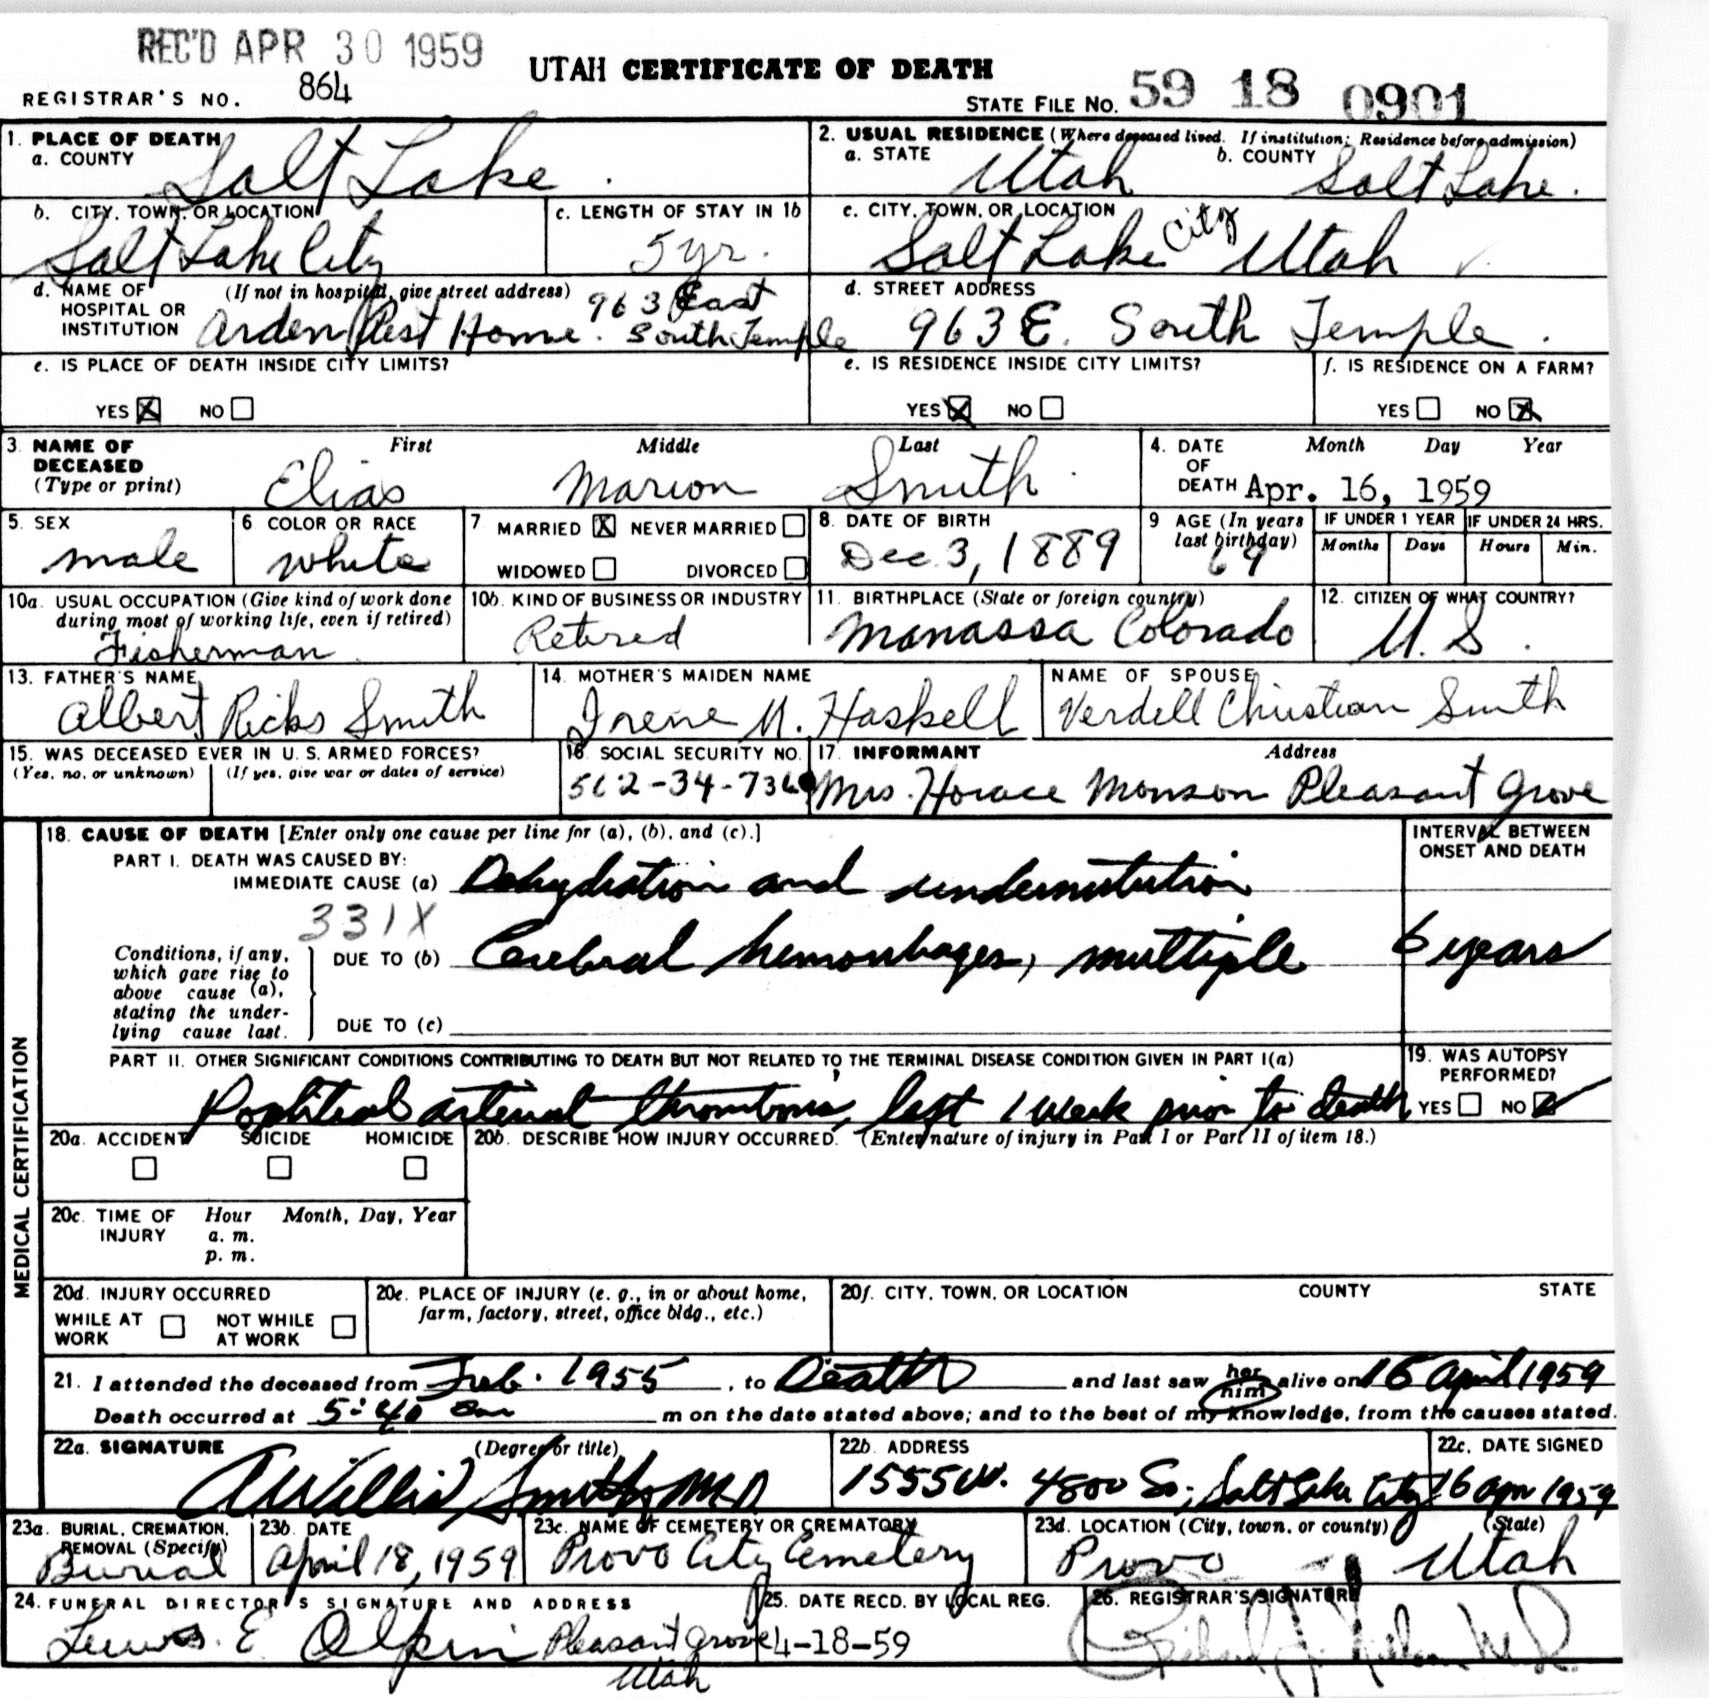 REC'D APR 30 1959
UTAH CERTIFICATE OF DEATH
REGISTRAR'S NO. 864
STATE FILE NO. 59 18 0901
1. PLACE OF DEATH
a. COUNTY Salt Lake
2. USUAL RESIDENCE (Where deceased lived. If institution: Residence before admission)
a. STATE Utah b. COUNTY Salt Lake.
b. CITY, TOWN, OR LOCATION Salt Lake City
c. LENGTH OF STAY IN 1b 5 yr.
c. CITY, TOWN, OR LOCATION Salt Lake City Utah
d. NAME OF HOSPITAL OR INSTITUTION (If not in hospital, give street address) Arden Rest Home. 963 East South Temple
d. STREET ADDRESS 963 E. South Temple.
e. IS PLACE OF DEATH INSIDE CITY LIMITS?
YES X NO
e. IS RESIDENCE INSIDE CITY LIMITS?
YES X NO
f. IS RESIDENCE ON A FARM?
YES NO X
3. NAME OF DECEASED (Type or print) First Middle Last
Elias Marion Smith
4. DATE OF DEATH Month Day Year
Apr. 16, 1959
5. SEX male
6 COLOR OR RACE white
7 MARRIED X NEVER MARRIED
WIDOWED DIVORCED
8. DATE OF BIRTH Dec 3, 1889
9 AGE (In years last birthday) 69
IF UNDER 1 YEAR Months Days
IF UNDER 24 HRS. Hours Min.
10a. USUAL OCCUPATION (Give kind of work done during most of working life, even if retired) Fisherman
10b. KIND OF BUSINESS OR INDUSTRY Retired
11. BIRTHPLACE (State or foreign country) Manassa Colorado
12. CITIZEN OF WHAT COUNTRY? U.S.
13. FATHER'S NAME Albert Ricks Smith
14. MOTHER'S MAIDEN NAME Irene M. Haskell
NAME OF SPOUSE Verdell Christian Smith
15. WAS DECEASED EVER IN U.S. ARMED FORCES?
(Yes, no, or unknown) (If yes, give war or dates of service)
16. SOCIAL SECURITY NO.
17. INFORMANT Address
Mrs. Horace Monson Pleasant Grove
MEDICAL CERTIFICATION
18. CAUSE OF DEATH [Enter only one cause per line for (a), (b), and (c).]
INTERVAL BETWEEN ONSET AND DEATH
PART I. DEATH WAS CAUSED BY:
IMMEDIATE CAUSE (a) Dehydration and undernutrition
331X
Conditions, if any, which gave rise to above cause (a), stating the underlying cause last.
DUE TO (b) Cerebral hemorrhages, multiple 6 years
DUE TO (c)
PART II. OTHER SIGNIFICANT CONDITIONS CONTRIBUTING TO DEATH BUT NOT RELATED TO THE TERMINAL DISEASE CONDITION GIVEN IN PART I(a)
Popliteal arterial thrombosis, left 1 week prior to death
19. WAS AUTOPSY PERFORMED?
YES NO
20a. ACCIDENT SUICIDE HOMICIDE
20b. DESCRIBE HOW INJURY OCCURRED. (Enter nature of injury in Part I or Part II of item 18.)
20c. TIME OF INJURY Hour Month, Day, Year
a. m.
p. m.
20d. INJURY OCCURRED
WHILE AT WORK NOT WHILE AT WORK
20e. PLACE OF INJURY (e. g., in or about home, farm, factory, street, office bldg., etc.)
20f. CITY, TOWN, OR LOCATION COUNTY STATE
21. I attended the deceased from Feb. 1955, to Death and last saw her him alive on 16 April 1959
Death occurred at 5:40 am m on the date stated above; and to the best of my knowledge, from the causes stated.
22a. SIGNATURE (Degree or title) A Willis Smith, MD
22b. ADDRESS 1555 W. 4800 So; Salt Lake City
22c. DATE SIGNED 16 apr 1959
23a. BURIAL, CREMATION, REMOVAL (Specify) Burial
23b. DATE April 18, 1959
23c. NAME OF CEMETERY OR CREMATORY Provo City Cemetery
23d. LOCATION (City, town, or county) (State) Provo Utah
24. FUNERAL DIRECTOR'S SIGNATURE AND ADDRESS
E Olpin Pleasant Grove Utah
25. DATE RECD. BY LOCAL REG. 4-18-59
26. REGISTRAR'S SIGNATURE